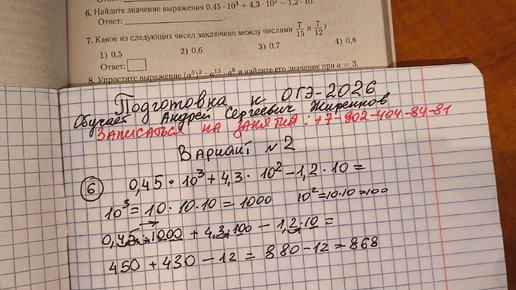 Ответ:
6. Найдите значение выражения 0,45 · 10³ + 4,3 · 10² − 1,2 · 10.
Ответ:
7. Какое из следующих чисел заключено между числами 7/15 и 7/12?
1) 0,5 2) 0,6 3) 0,7 4) 0,8
Ответ:
8. Упростите выражение (a⁵)² · a¹³ : a⁶ и найдите его значение при a = 3.
Подготовка к ОГЭ-2026
Обучает Андрей Сергеевич Жиренков
Записаться на занятия: +7-902-404-84-81
Вариант №2
6 0,45 · 10³ + 4,3 · 10² − 1,2 · 10 =
10³ = 10 · 10 · 10 = 1000 10² = 10·10 = 100
0,45 · 1000 + 4,3 · 100 − 1,2 · 10 =
450 + 430 − 12 = 880 − 12 = 868